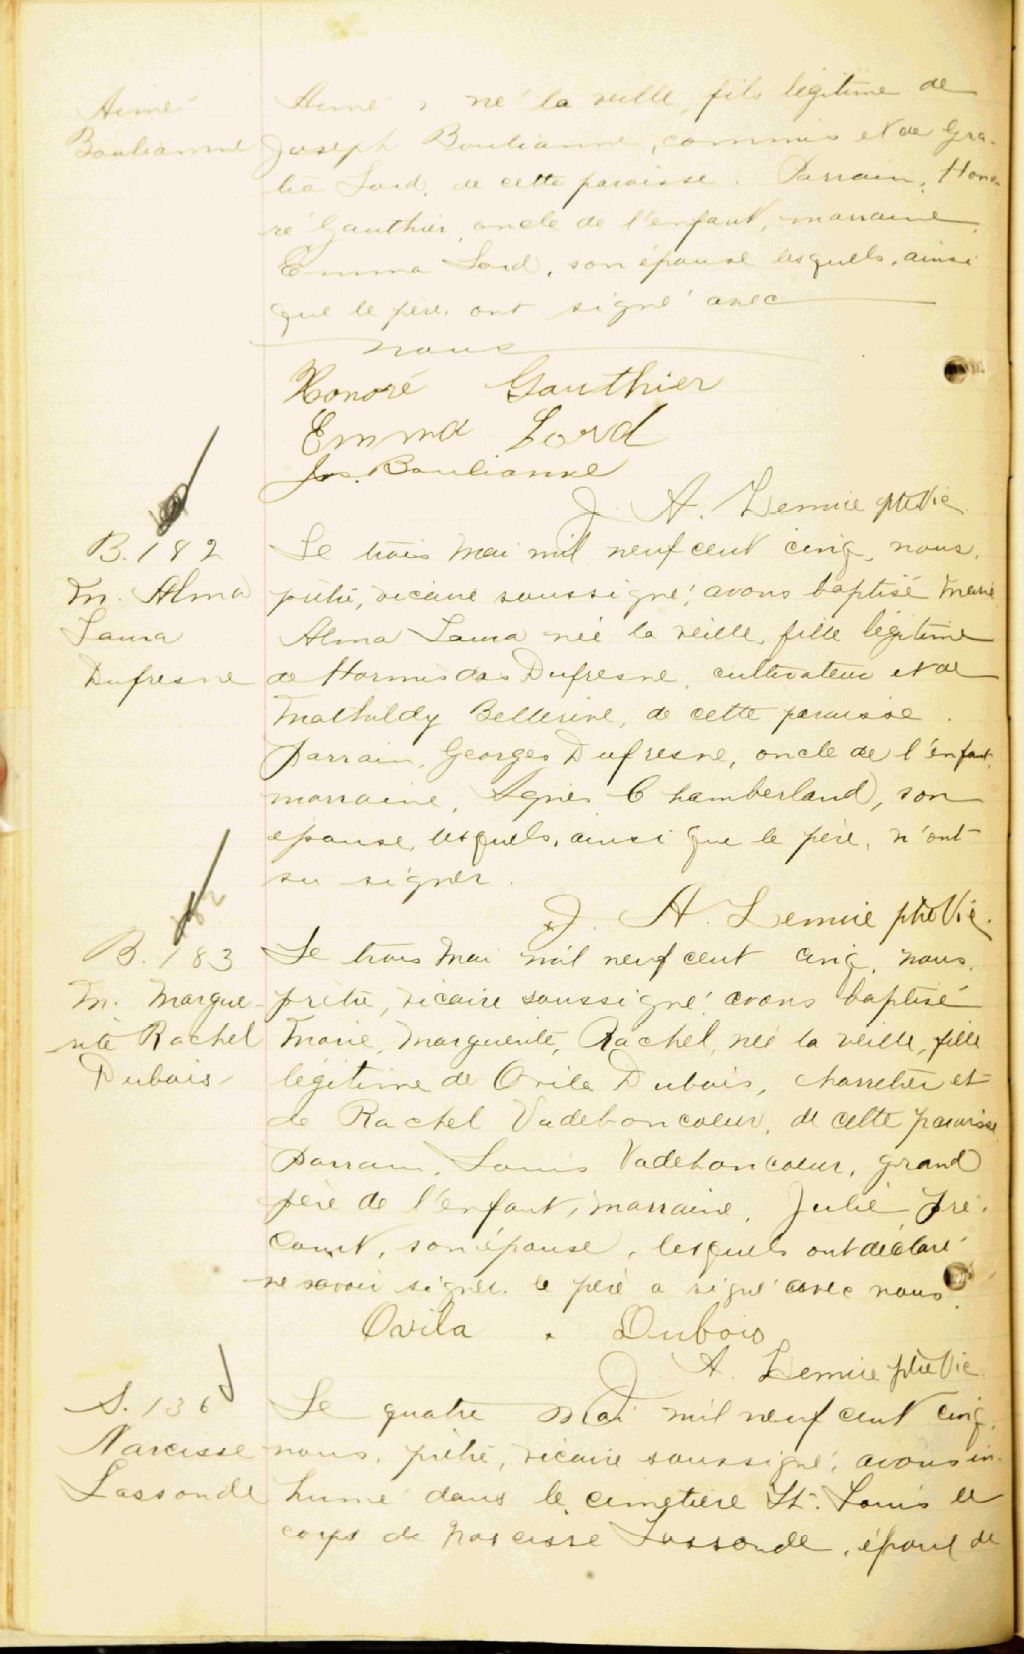 Aimé
Boulianne
Aimé, né la veille, fils légitime de
Joseph Boulianne, commis et de Gra-
tia Lord, de cette paroisse. Parrain, Hono-
ré Gauthier, oncle de l'enfant, marraine,
Emma Lord, son épouse lesquels, ainsi
que le père, ont signé avec
nous
Honoré Gauthier
Emma Lord
Jos. Boulianne
J. A. Lemire ptre Vic.
B. 182
M. Alma
Laura
Dufresne
Le trois mai mil neuf cent cinq, nous,
prêtre, vicaire soussigné, avons baptisé Marie
Alma Laura née la veille, fille légitime
de Hormisdas Dufresne, cultivateur et de
Mathildy Bellerive, de cette paroisse.
Parrain, Georges Dufresne, oncle de l'enfant,
marraine, Agnès Chamberland, son
épouse, lesquels, ainsi que le père, n'ont
su signer.
J. A. Lemire ptre Vic.
B. 183
M. Margue-
rite Rachel
Dubois
Le trois mai mil neuf cent cinq, nous,
prêtre, vicaire soussigné, avons baptisé
Marie, Marguerite, Rachel, née la veille, fille
légitime de Ovila Dubois, charretier et
de Rachel Vadeboncoeur, de cette paroisse
Parrain, Louis Vadeboncoeur, grand
père de l'enfant, marraine, Julie Fré-
court, son épouse, lesquels ont déclaré
ne savoir signer. le père a signé avec nous.
Ovila Dubois
J. A. Lemire ptre Vic.
S. 136
Narcisse
Lassonde
Le quatre mai mil neuf cent cinq,
nous, prêtre, vicaire soussigné, avons in-
humé dans le cimetière St. Louis le
corps de Narcisse Lassonde, époux de